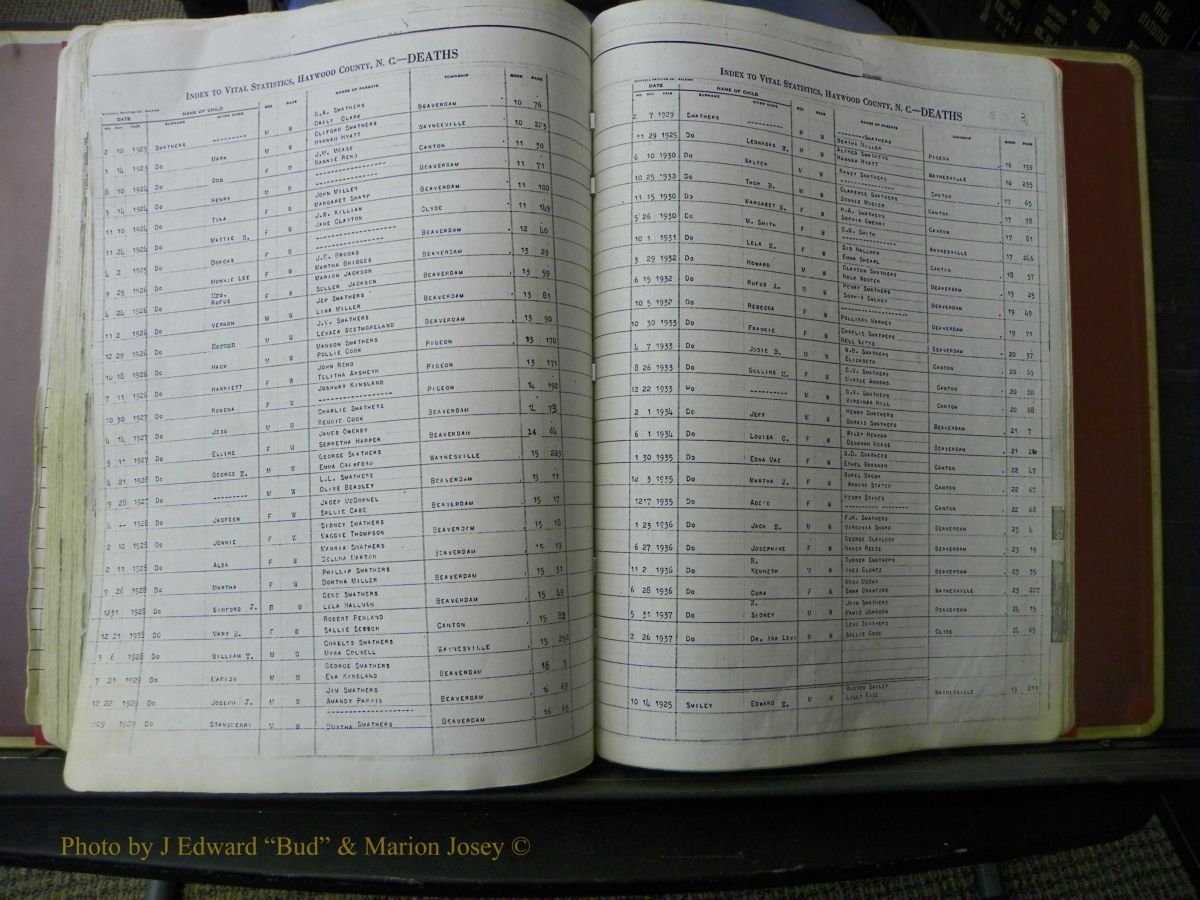 INDEX TO VITAL STATISTICS, HAYWOOD COUNTY, N. C.—DEATHS
DATE NAME OF CHILD SEX RACE NAME OF PARENTS TOWNSHIP BOOK PAGE
MO. DAY YEAR SURNAME GIVEN NAME
2 10 1923 SMATHERS -------- M W G.A. SMATHERS BEAVERDAM 10 76
DAILY CLARK
1 14 1923 DO MARK M W CLIFORD SMATHERS WAYNESVILLE 10
HANNAH HYATT
8 10 1924 DO ONA F W J.M. MEASE CANTON 11 30
NANNIE RENO
3 14 1924 DO HENRY M B -------- BEAVERDAM 11 71
11 10 1924 DO TINA F W JOHN MILLER BEAVERDAM 11 100
MARGARET SHARP
11 24 1924 DO MATTIE F W J.W. KILLIAN CLYDE 11 149
JANE CLAYTON
4 2 1925 DO DORCAS F B -------- BEAVERDAM 12 40
9 25 1926 DO MONNIE LEE F W J.C. BROOKS BEAVERDAM 13 29
MARTHA BRIDGES
4 24 1926 DO MRS. RUFUS F W MARION JACKSON BEAVERDAM 13 59
JACKSON
11 2 1926 DO VERNON M W JEP SMATHERS BEAVERDAM 13 81
LINA MILLER
12 29 1926 DO HERMAN M W J.V. SMATHERS BEAVERDAM 13 90
WESTMORELAND
10 18 1926 DO HACK M W MANSON SMATHERS PIGEON 13 170
POLLIE COOK
7 11 1926 DO HARRIETT F W JOHN RENO PIGEON 13 171
10 30 1927 DO ROXENA F W JOSHUAY KINSLAND PIGEON 14 192
4 14 1927 DO JESS M W CHARLIE SMATHERS BEAVERDAM 73
COOK
1927 DO ELLINE F W JAMES OWENBY BEAVERDAM 14 64
HARPER
4 21 1928 DO GEORGE E. M W GEORGE SMATHERS WAYNESVILLE 15 223
EMMA CRAWFORD
9 28 1927 DO -------- M W L.L. SMATHERS BEAVERDAM 15 11
OLIVE BEASLEY
4 -- 1928 DO JACFEEN F W BEAVERDAM 15 17
SALLIE CAGE
2 10 1928 DO JONNIE F W SIDNEY SMATHERS BEAVERDAM 15 18
MAGGIE THOMPSON
2 11 1928 DO ALDA F W SMATHERS BEAVERDAM 15 19
9 26 1928 DO MARTHA F W PHILLIP SMATHERS BEAVERDAM 15 31
DORTHA MILLER
1231 1928 DO J. W GENE SMATHERS BEAVERDAM 15 49
LELA HALLMAN
12 21 DO MARY F W ROBERT PENLAND CANTON 15
SALLIE
3 6 1928 DO WILLIAM T. M W CHARLES SMATHERS WAYNESVILLE 15 252
MYRA COLWELL
7 21 1929 DO MARION M W GEORGE SMATHERS BEAVERDAM 16 5
EVA KINSLAND
12 22 1929 DO JOSEPH J. M W JIM SMATHERS BEAVERDAM 16 63
AMANDY PARRIS
1929 DO STANSBERRY W DORTHA SMATHERS BEAVERDAM 16 65
INDEX TO VITAL STATISTICS, HAYWOOD COUNTY, N. C.—DEATHS
DATE NAME OF CHILD SEX RACE NAME OF PARENTS TOWNSHIP BOOK PAGE
MO. DAY YEAR SURNAME GIVEN NAME
2 7 1929 SMATHERS -------- M W --------SMATHERS PIGEON 16 159
BERTHA MILLER
11 29 1925 DO LEONADAS T. M W ALFRED SMATHERS WAYNESVILLE 16 235
HANNAH HYATT
6 10 1930 DO WALTER M W RANEY SMATHERS CANTON 17 65
10 25 1930 DO THOS B. M W CLARENCE SMATHERS CANTON 17 78
BONNIE MOSIER
11 15 1930 DO MARGARET F W H.A. SMATHERS CANTON 17 81
SOPHIA OWENBY
5 26 1930 DO M. SMITH F W G.W. SMITH WAYNESVILLE 17
10 1 1931 DO LELA F W SID HALLMAN CANTON 18 57
EMMA
3 29 1932 DO HOWARD M W CLAYTON SMATHERS BEAVERDAM 19 25
WOOTEN
6 15 1932 DO RUFUS A. M W HENRY SMATHERS BEAVERDAM 19 49
SOPHIA OWENBY
10 5 1932 DO REBECCA F W -------- BEAVERDAM 19 71
10 30 1933 DO FRANKIE F W CHARLIE SMATHERS BEAVERDAM 20 37
NELL
4 7 1933 DO B. M W W.B. SMATHERS CANTON 20 65
ELIZABETH
8 26 1933 DO M W G.V. SMATHERS CANTON 20 80
MYRTLE AMMONS
12 22 1933 DO -------- G.V. SMATHERS CANTON 20 88
VIRGINIA HALL
2 1 1934 DO JEFF M W HENRY SMATHERS BEAVERDAM 21 7
SMATHERS
6 1 1934 DO LOUISA C. F W WILEY HENSON BEAVERDAM 21 26
MEASE
1 30 1935 DO EDNA MAE F W B.D. SMATHERS CANTON 22 47
ETHEL BRANNAN
12 3 1935 DO MARTHA J. F W BUREL BROWN CANTON 22 67
1217 1935 DO ADDIE F W HENRY STINES CANTON 22 68
1 23 1936 DO JACK E. M W F.M. SMATHERS BEAVERDAM 23 4
VIRGINIA SHARP
6 27 1936 DO JOSEPHINE F W GEORGE BLAYLOCK BEAVERDAM 23 19
NANCY REECE
11 2 1936 DO B. KENNETH M W TURNER SMATHERS BEAVERDAM 23 35
INEZ CLONTZ
6 28 1936 DO CORA F W MACK MCKAY WAYNESVILLE 23 207
EMMA CRAWFORD
5 31 1937 DO SIDNEY M W JOHN SMATHERS BEAVERDAM 24 15
MAMIE JOHNSON
2 26 1937 DO DR. IRA LEVI M W LEVI SMATHERS CLYDE 24 65
SALLIE COOK
10 14 1925 SMILEY EDWARD E. M W BURTON SMILEY WAYNESVILLE 13 211
Photo by J Edward “Bud” & Marion Josey ©